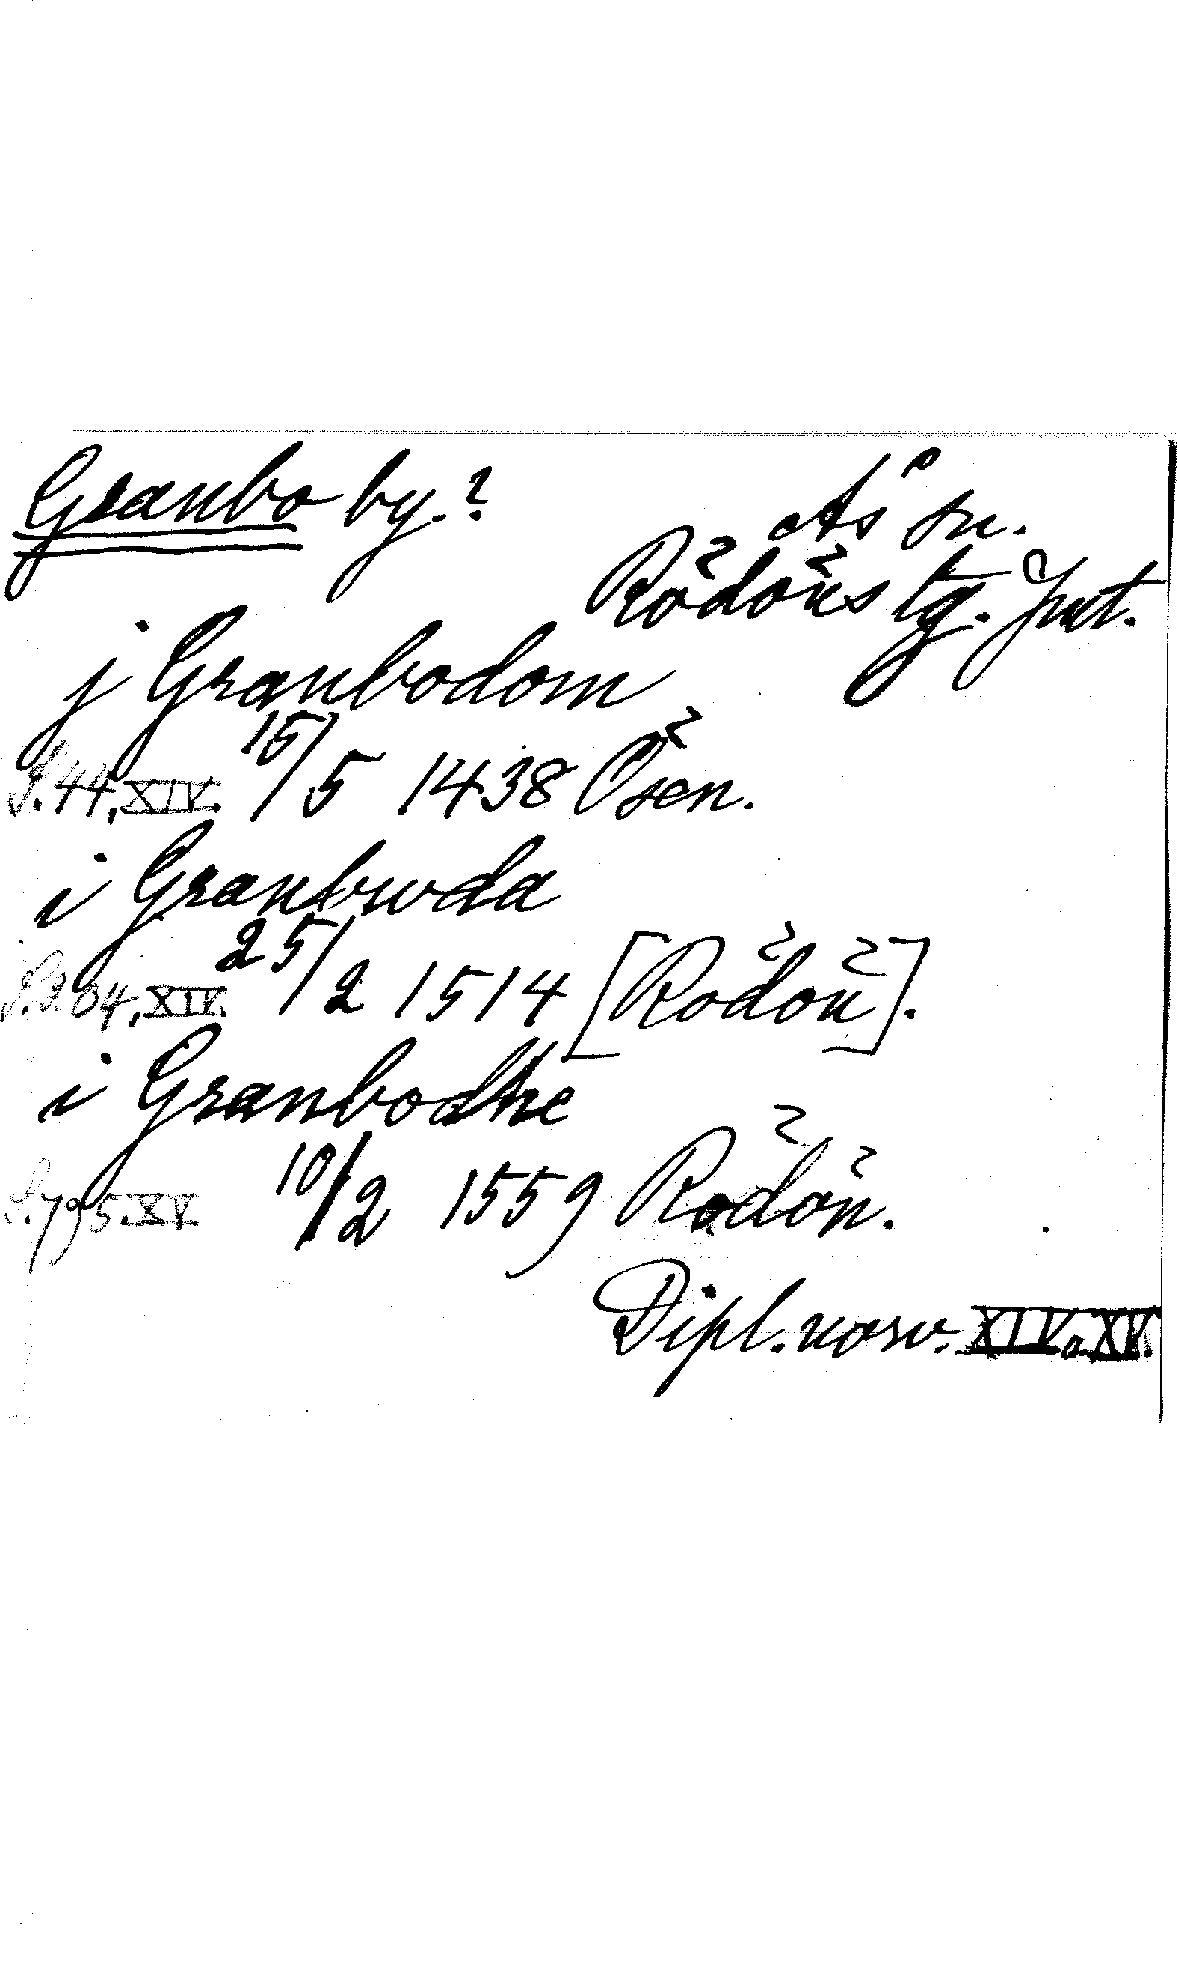 Granbo by.?
Ås sn.
Rödöns tg. Jmt.
j Granbodom
S. 44, XIV. 15/5 1438 Ösen.
i Granbwda
S. 204, XIV. 25/2 1514 [Rödön].
i Granbodhe
S. 795. XV. 10/2 1559 Rödön.
Dipl. norv. XIV o. XV.